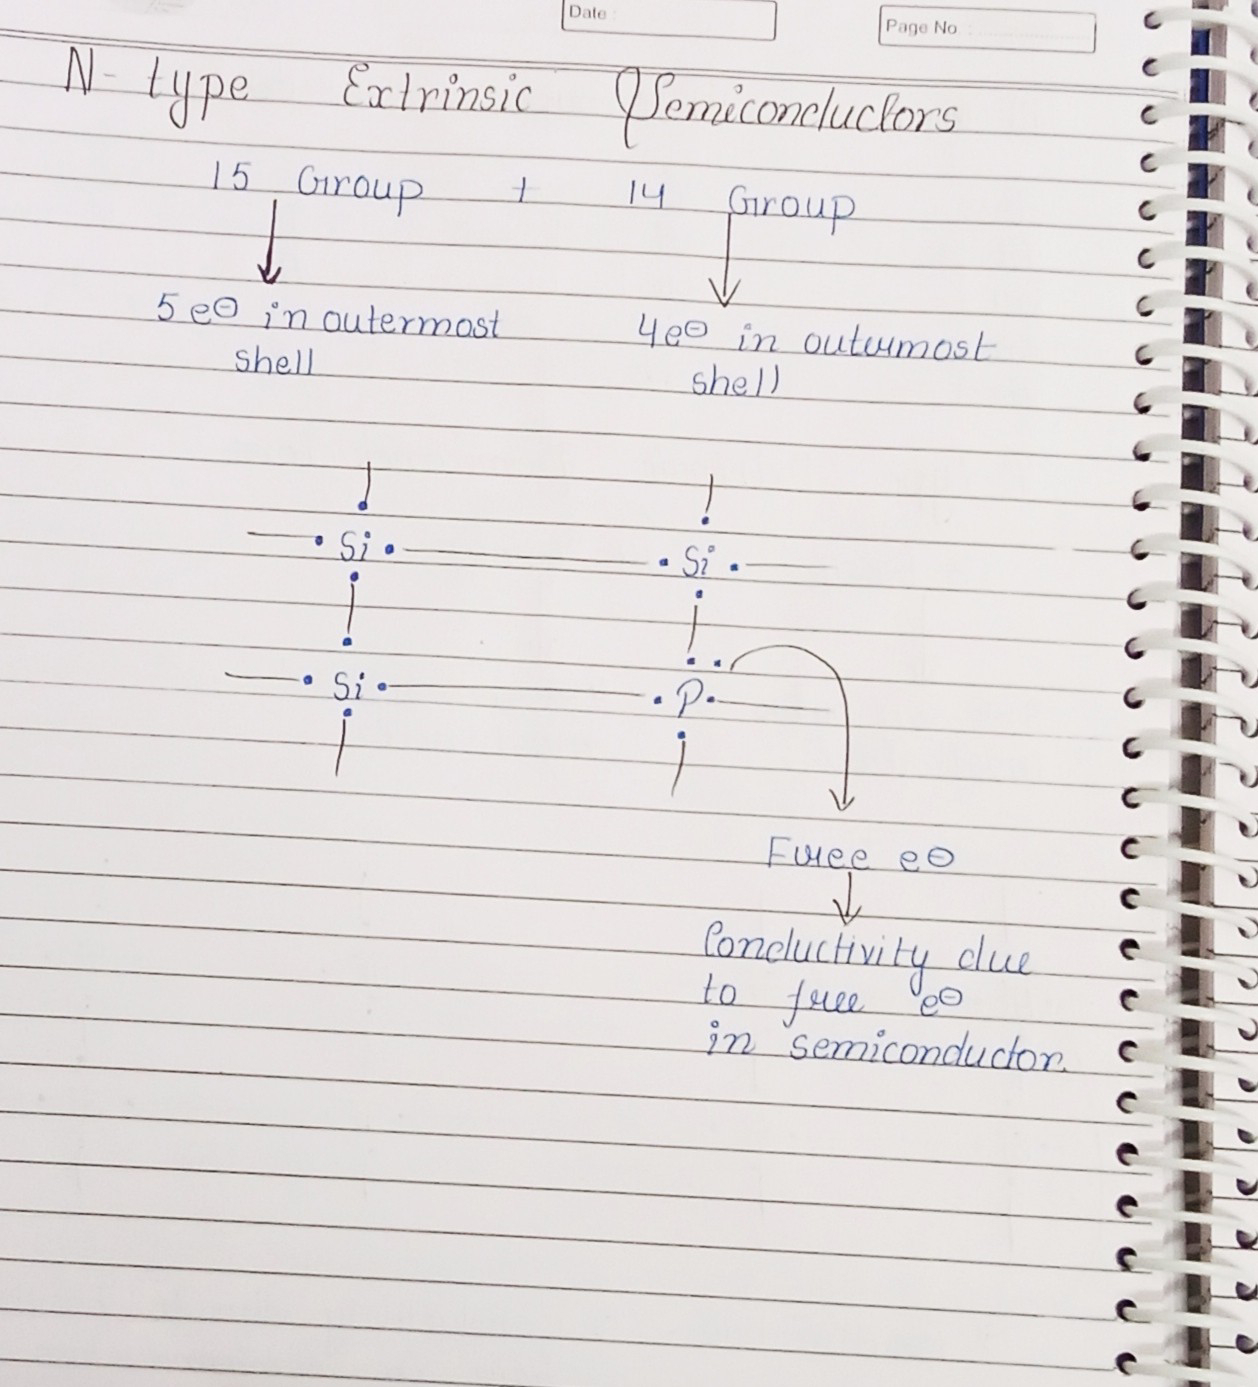 Date
Page No
N-type Extrinsic Semiconductors
15 Group + 14 Group
5 e⊖ in outermost shell
4e⊖ in outermost shell
Si Si
Si P
Free e⊖
Conductivity due
to free e⊖
in semiconductor.